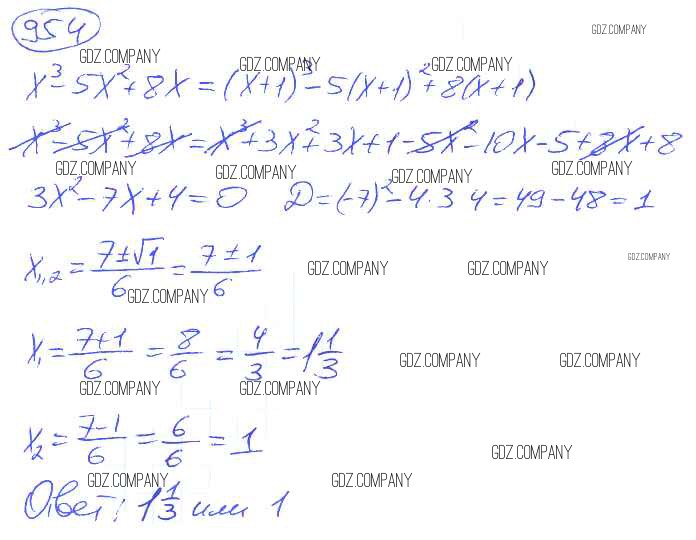 954
GDZ.COMPANY
GDZ.COMPANY GDZ.COMPANY GDZ.COMPANY
x³-5x²+8x=(x+1)³-5(x+1)²+8(x+1)
x³-5x²+8x=x³+3x²+3x+1-5x²-10x-5+8x+8
GDZ.COMPANY GDZ.COMPANY GDZ.COMPANY
3x²-7x+4=0 D=(-7)²-4·3 4=49-48=1
x₁,₂=(7±√1)/6=(7±1)/6
GDZ.COMPANY GDZ.COMPANY GDZ.COMPANY
GDZ.COMPANY
x₁=(7+1)/6=8/6=4/3=1 1/3
GDZ.COMPANY GDZ.COMPANY
GDZ.COMPANY GDZ.COMPANY
x₂=(7-1)/6=6/6=1
GDZ.COMPANY
GDZ.COMPANY GDZ.COMPANY
Ответ: 1 1/3 или 1